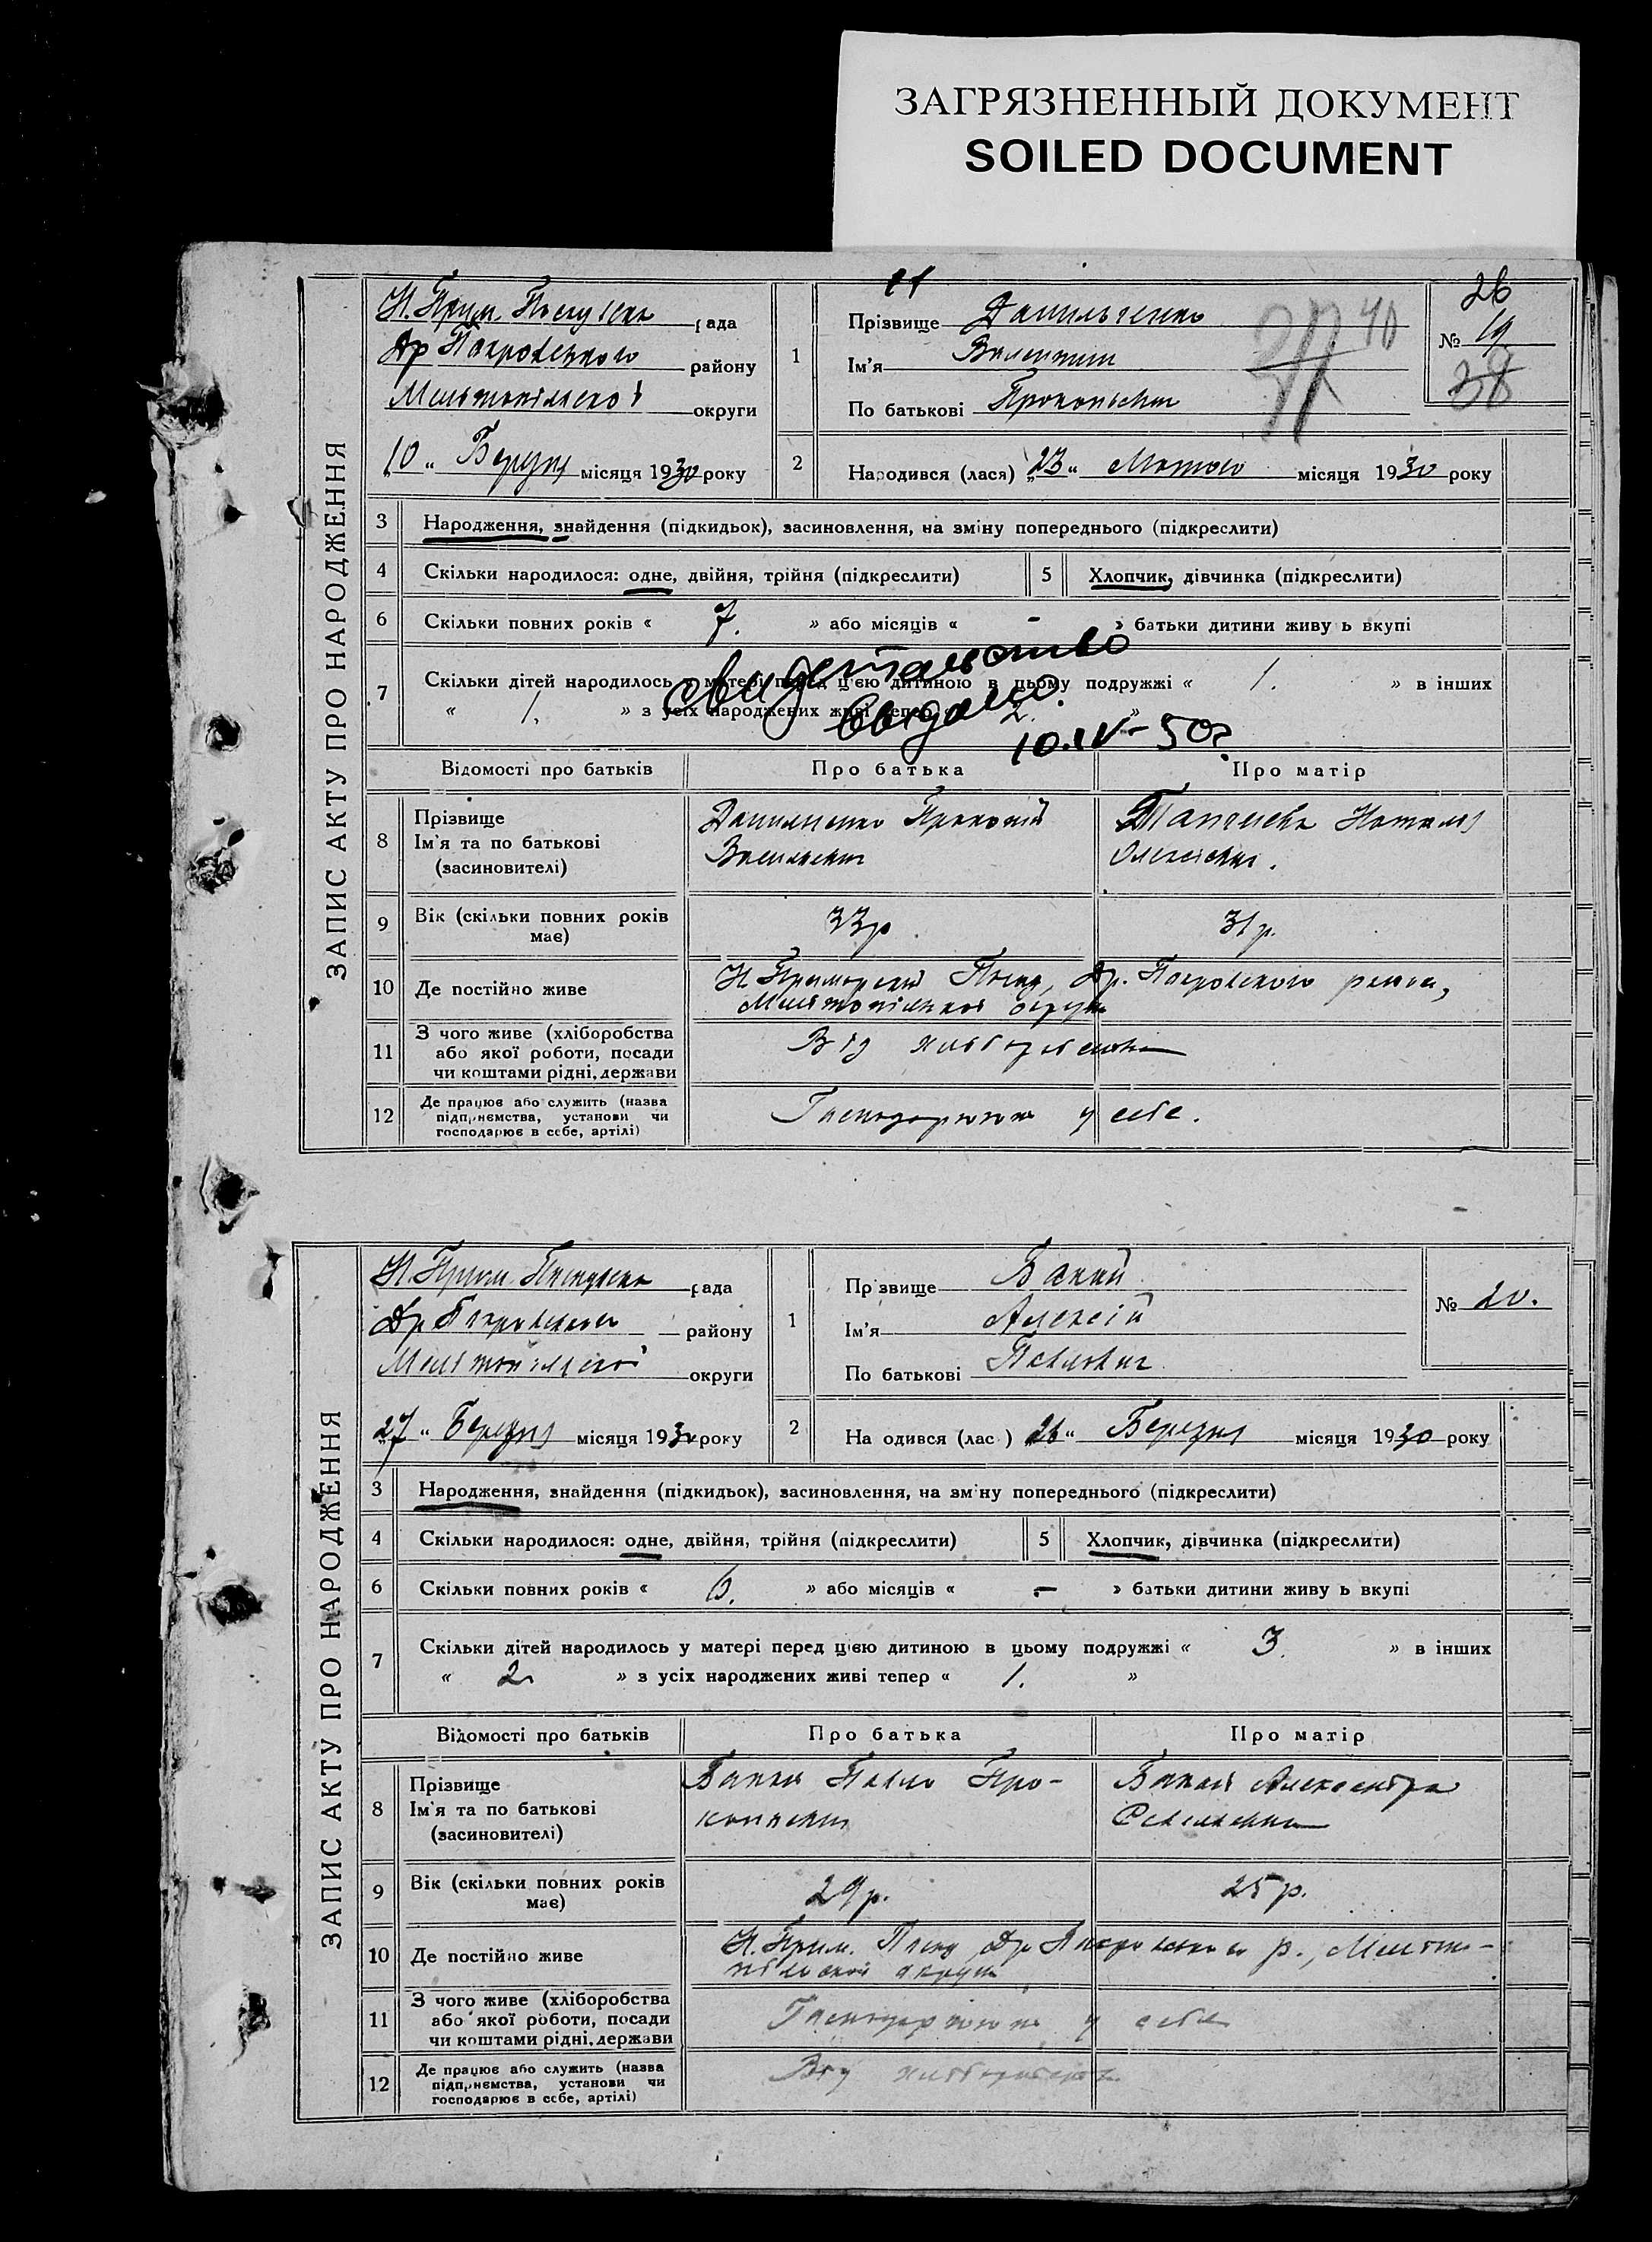 ЗАГРЯЗНЕННЫЙ ДОКУМЕНТ
SOILED DOCUMENT
ЗАПИС АКТУ ПРО НАРОДЖЕННЯ
Н. Прим. Посадська рада
Др Покровського району
Мелітопільської округи
„10“ Березня місяця 1930 року
1
Прізвище Данильченко
Ім'я Валентин
По батькові Прокопьевич
37 40
26
№ 19
38
2
Народився (лася) „23“ Лютого місяця 1930 року
3 Народження, знайдення (підкидьок), засиновлення, на зміну попереднього (підкреслити)
4 Скільки народилося: одне, двійня, трійня (підкреслити)
5 Хлопчик, дівчинка (підкреслити)
6 Скільки повних років « 7. » або місяців « - » батьки дитини живу ь вкупі
7 Скільки дітей народилось у матері перед ц'єю дитиною в цьому подружжі « 1. » в інших
« 1. » з усіх народжених живі тепер « 2. »
свидетельство
выдано.
10.IV-50г
Відомості про батьків Про батька Про матір
8 Прізвище
Ім'я та по батькові
(засиновителі)
Данильченко Прокопій
Васильевич
Наталія
Олексіевна.
9 Вік (скільки повних років
має)
33р
31р.
10 Де постійно живе
Н Приморський Посад, Др. Покровського района,
Мелітопільської округи
11 З чого живе (хліборобства
або якої роботи, посади
чи коштами рідні, держави
Від хліборобства
12 Де працює або служить (назва
підприємства, установи чи
господарює в себе, артілі)
Господарюють у себе.
ЗАПИС АКТУ ПРО НАРОДЖЕННЯ
Н. Прим. Посадська рада
Др Покровського району
Мелітопільської округи
„27“ Березня місяця 1930 року
1
Пр звище Бакай
Ім'я Алексій
По батькові Павлович
№ 20.
2
На одився (лас ) „26“ Березня місяця 1930 року
3 Народження, знайдення (підкидьок), засиновлення, на зміну попереднього (підкреслити)
4 Скільки народилося: одне, двійня, трійня (підкреслити)
5 Хлопчик, дівчинка (підкреслити)
6 Скільки повних років « » або місяців « - » батьки дитини живу ь вкупі
7 Скільки дітей народилось у матері перед ц'єю дитиною в цьому подружжі « 3. » в інших
« 2 » з усіх народжених живі тепер « 1. »
Відомості про батьків Про батька Про матір
8 Прізвище
Ім'я та по батькові
(засиновителі)
Бакай Павло Про-
копьевич
Бакай Александра
Савельевна
9 Вік (скільки повних років
має)
29р.
25р.
10 Де постійно живе
Н. Прим. Посад Др Покровського р., Меліто-
пільської округи
11 З чого живе (хліборобства
або якої роботи, посади
чи коштами рідні, держави
Господарюють у себе
12 Де працює або служить (назва
підприємства, установи чи
господарює в себе, артілі)
Від хліборобства